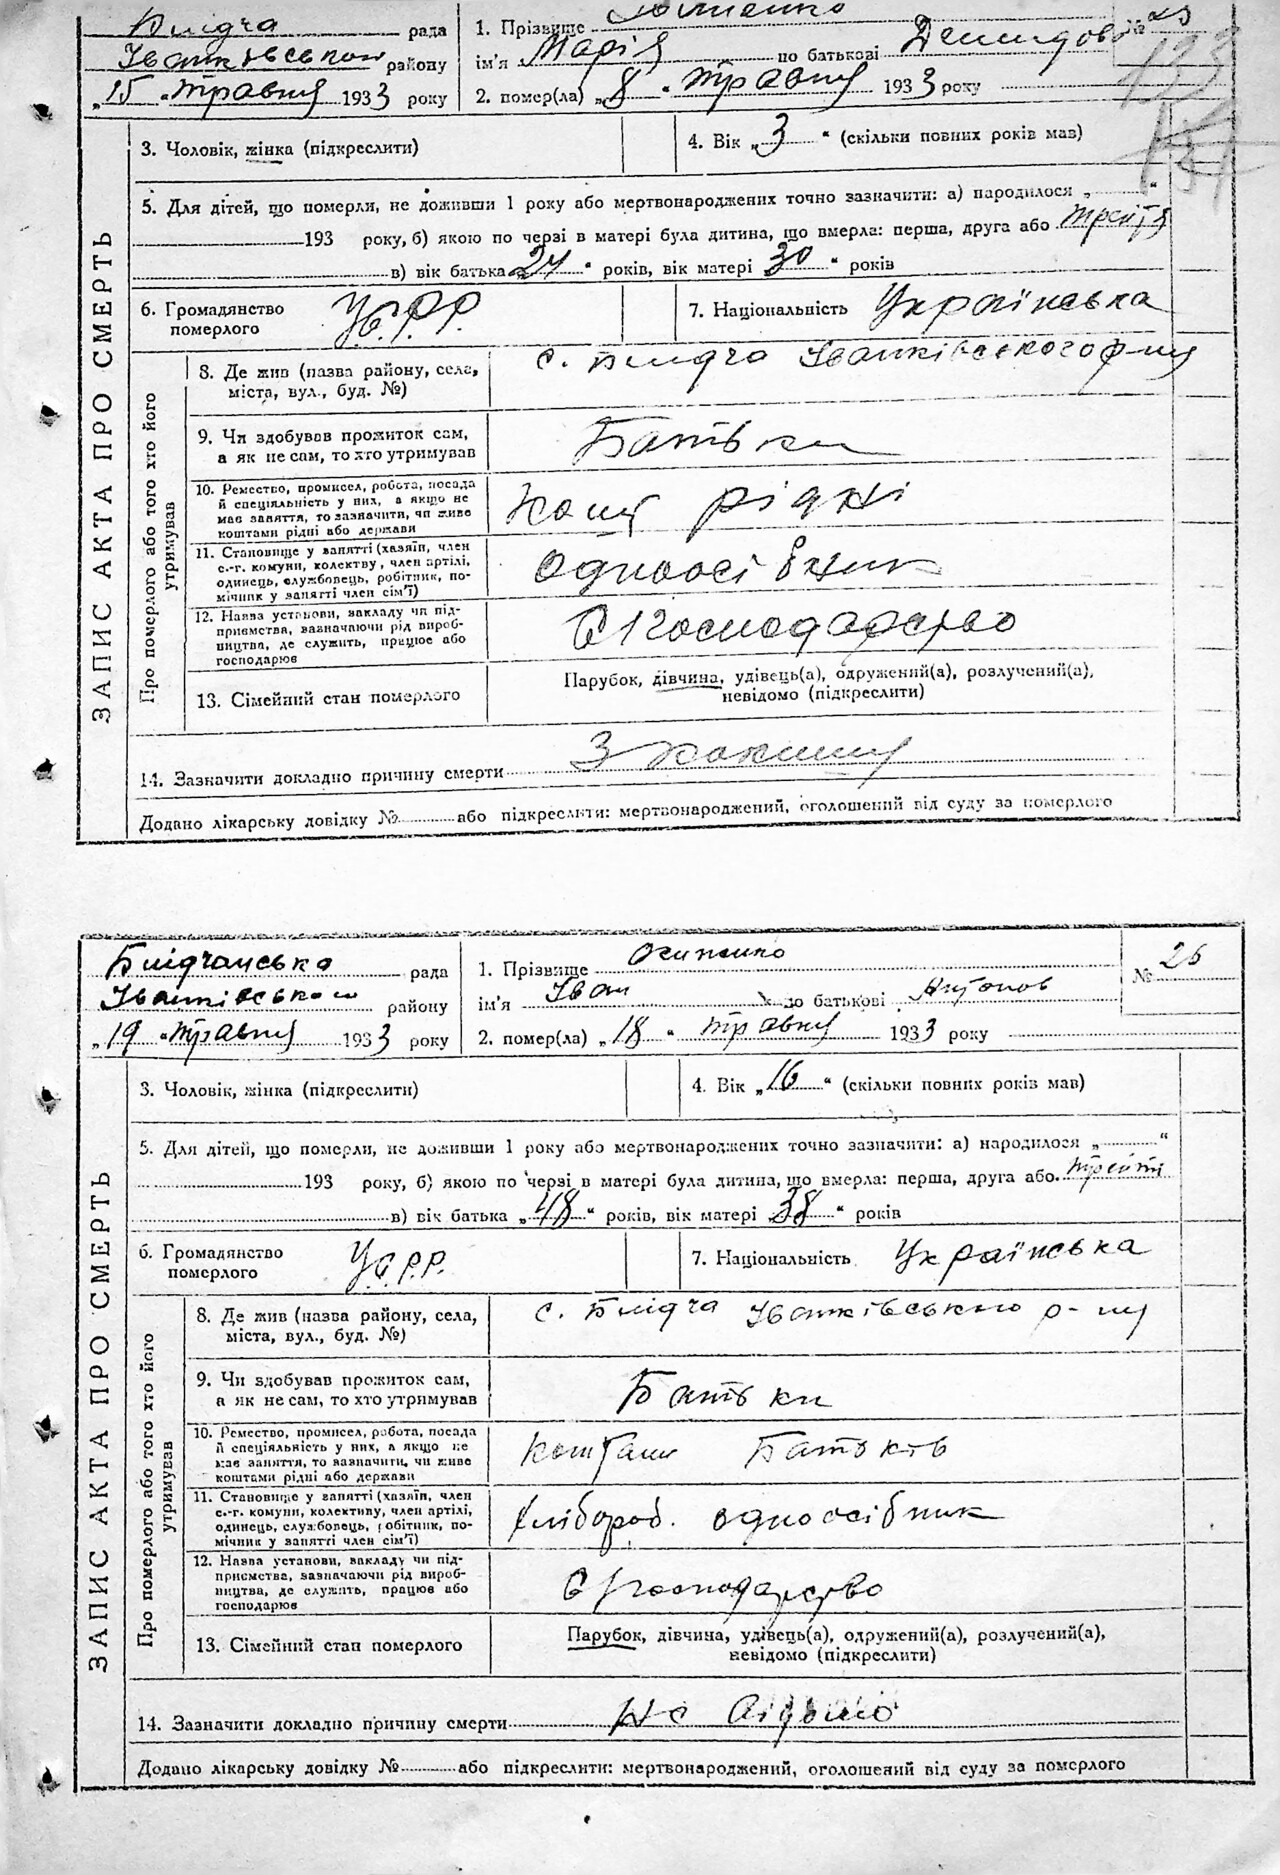 Блідча рада
Іванківського району
„15 „ травня 1933 року
1. Прізвище
№ 25
ім'я Марія по батькові Демидово
2. помер(ла) „8 „ травня 1933 року
ЗАПИС АКТА ПРО СМЕРТЬ
3. Чоловік, жінка (підкреслити)
4. Вік „3“ (скільки повних років мав)
5. Для дітей, що померли, не доживши 1 року або мертвонароджених точно зазначити: а) народилося „ “
193 року, б) якою по черзі в матері була дитина, що вмерла: перша, друга або третя
в) вік батька „27“ років, вік матері 30 “ років
6. Громадянство
померлого
УСРР.
7. Національність Українська
Про померлого або того хто його
утримував
8. Де жив (назва району, села,
міста, вул., буд. №)
с. Блідча Іванківського р-ну
9. Чи здобував прожиток сам,
а як не сам, то хто утримував
Батьки
10. Ремество, промисел, робота, посада
й спеціяльність у них, а якщо не
має заняття, то зазначити, чи живе
коштами рідні або держави
Кошт рідні
11. Становище у занятті (хазяїн, член
с.-г. комуни, колективу, член артілі,
одинець, службовець, робітник, по-
мічник у занятті член сім'ї)
одноосібник
12. Назва установи, закладу чи під-
приємства, зазначаючи рід вироб-
ництва, де служить, працює або
господарює
С/господарство
13. Сімейний стан померлого
Парубок, дівчина, удівець(а), одружений(а), розлучений(а),
невідомо (підкреслити)
14. Зазначити докладно причину смерти
Додано лікарську довідку № або підкреслити: мертвонароджений, оголошений від суду за померлого
Блідчанська рада
Іванківського району
„19 „ травня 1933 року
1. Прізвище Осипенко
№ 26
ім'я Іван по батькові Антонов
2. помер(ла) „18 “ травня 1933 року
ЗАПИС АКТА ПРО СМЕРТЬ
3. Чоловік, жінка (підкреслити)
4. Вік „16“ (скільки повних років мав)
5. Для дітей, що померли, не доживши 1 року або мертвонароджених точно зазначити: а) народилося „ “
193 року, б) якою по черзі в матері була дитина, що вмерла: перша, друга або третя
в) вік батька „48“ років, вік матері „38“ років
6. Громадянство
померлого
УСРР.
7. Національність Українська
Про померлого або того хто його
утримував
8. Де жив (назва району, села,
міста, вул., буд. №)
с. Блідча Іванківського р-ну
9. Чи здобував прожиток сам,
а як не сам, то хто утримував
Батьки
10. Ремество, промисел, робота, посада
й спеціяльність у них, а якщо не
має заняття, то зазначити, чи живе
коштами рідні або держави
Коштами Батьків
11. Становище у занятті (хазяїн, член
с.-г. комуни, колективу, член артілі,
одинець, службовець, робітник, по-
мічник у занятті член сім'ї)
хлібороб. одноосібник
12. Назва установи, закладу чи під-
приємства, зазначаючи рід вироб-
ництва, де служить, працює або
господарює
С/господарство
13. Сімейний стан померлого
Парубок, дівчина, удівець(а), одружений(а), розлучений(а),
невідомо (підкреслити)
14. Зазначити докладно причину смерти Не відомо
Додано лікарську довідку № або підкреслити: мертвонароджений, оголошений від суду за померлого